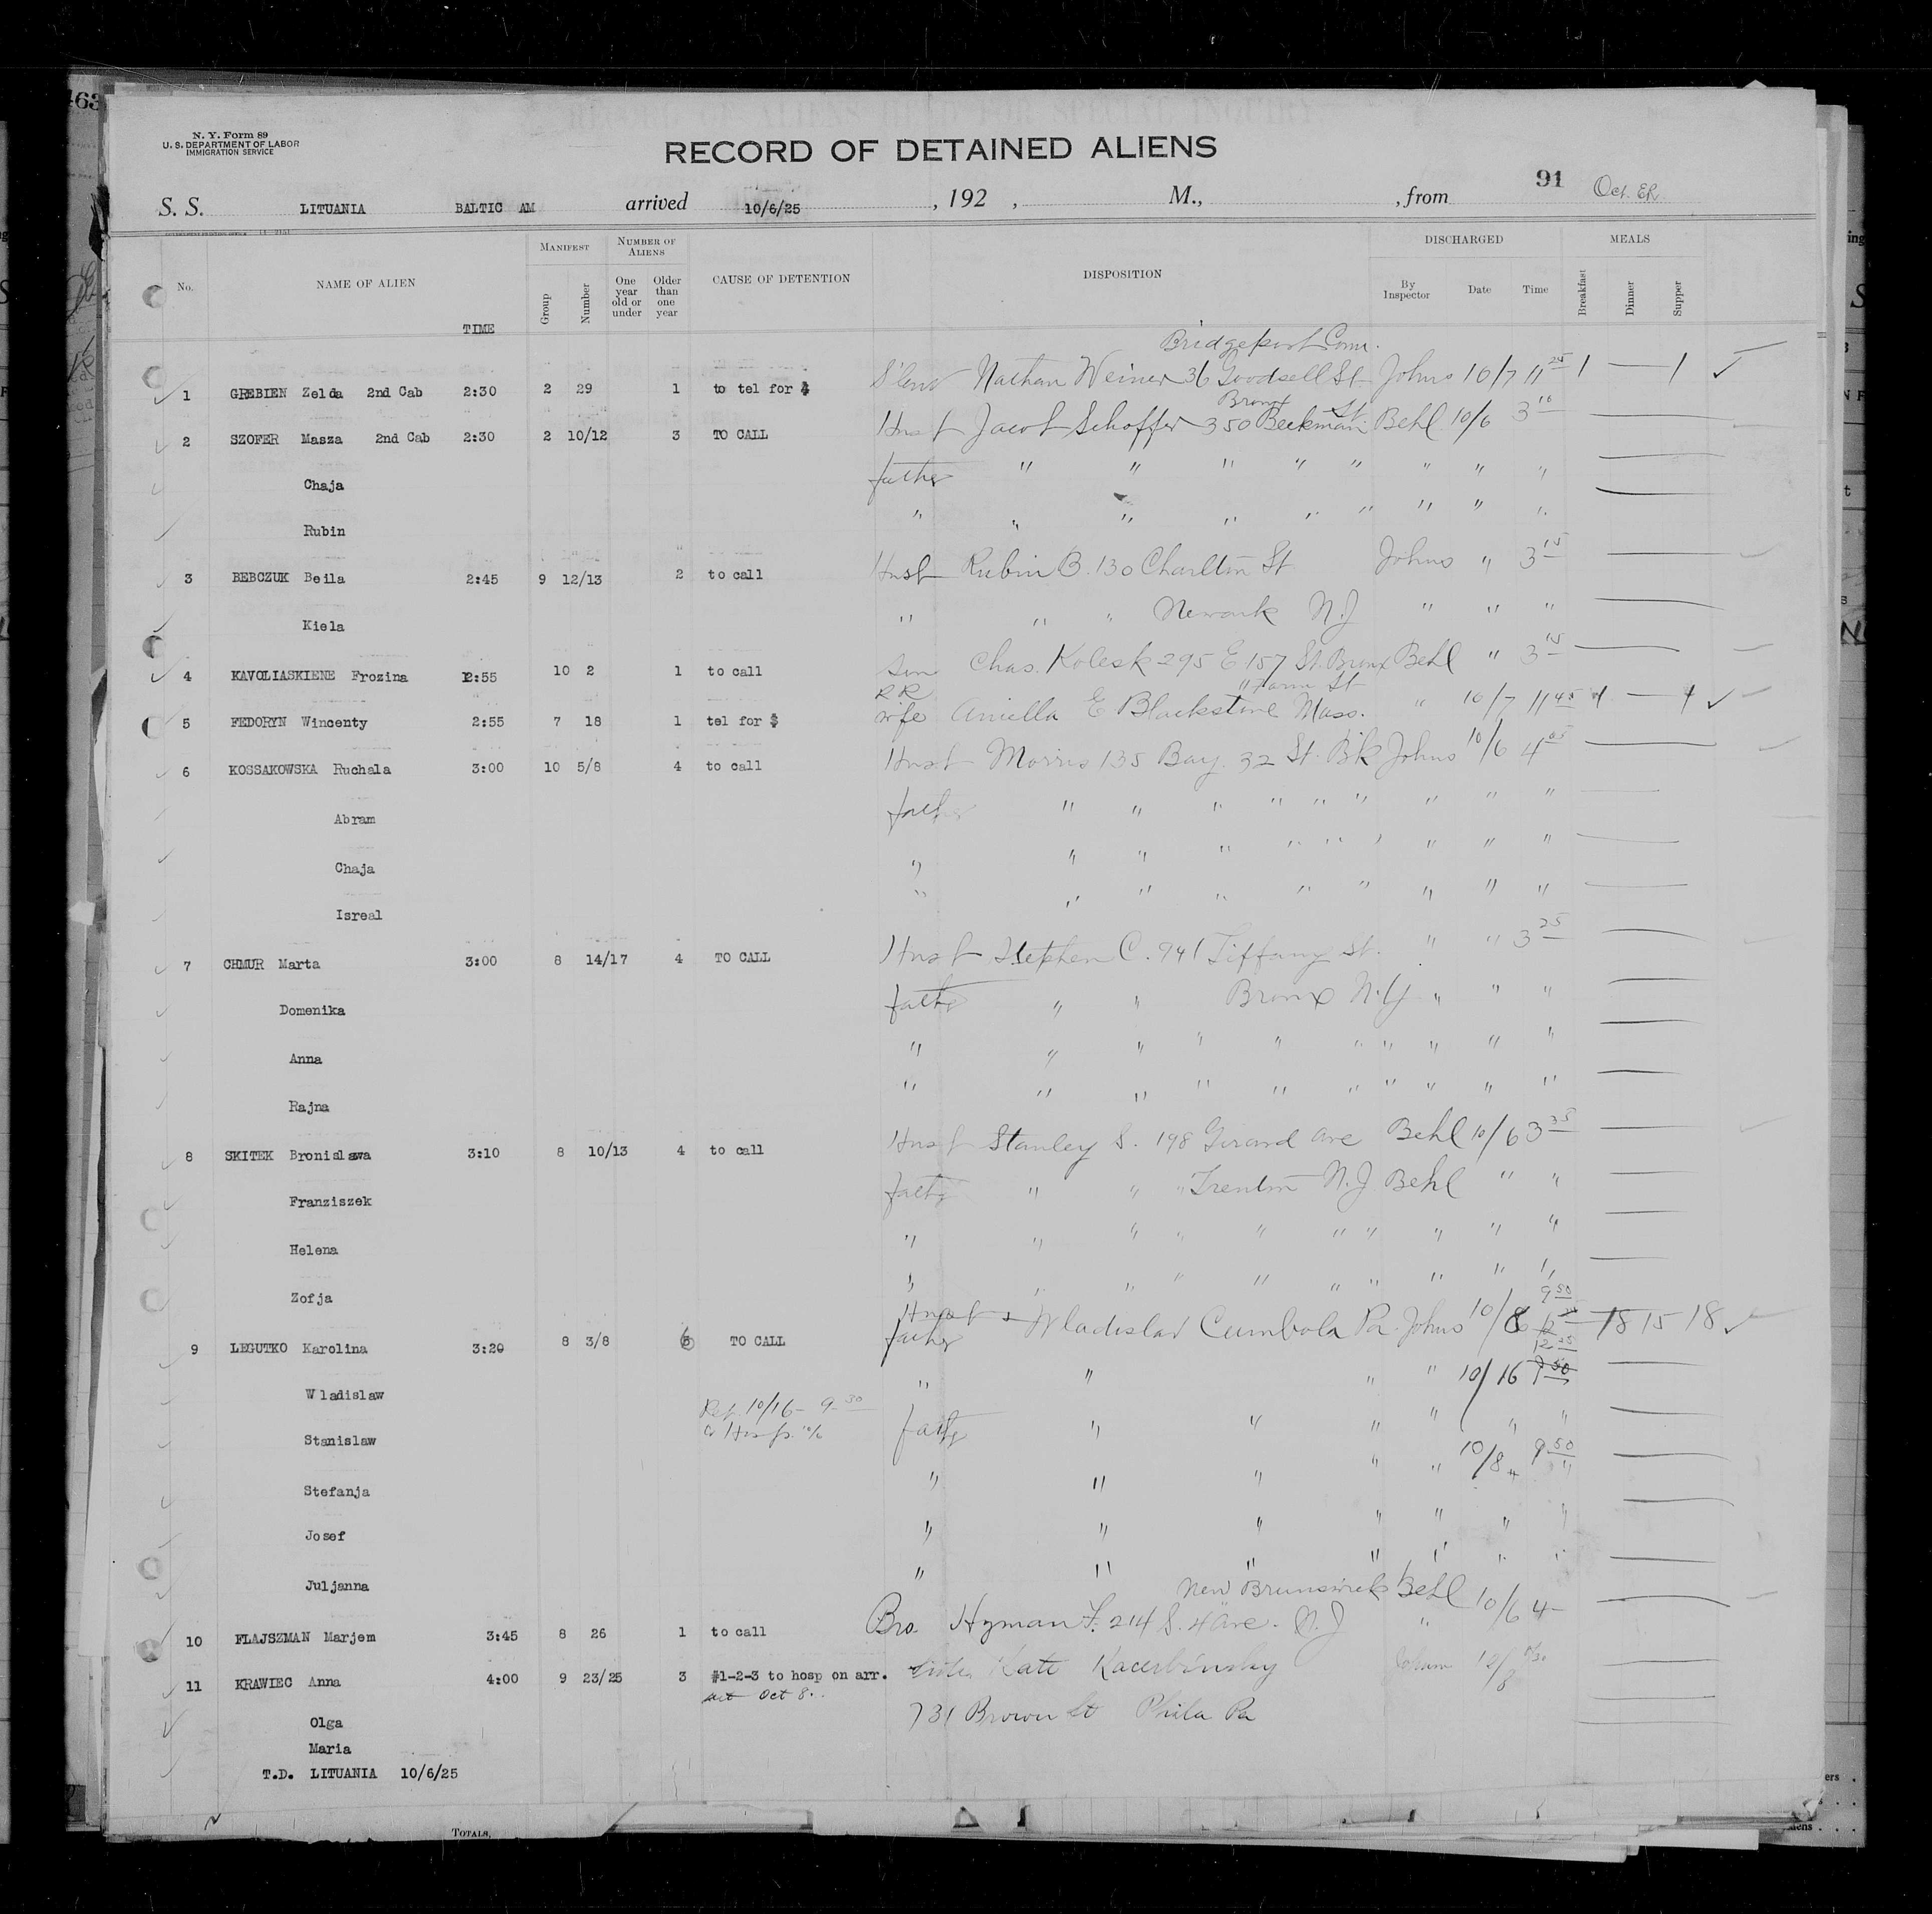 463
N. Y. Form 89
U. S. DEPARTMENT OF LABOR
IMMIGRATION SERVICE
RECORD OF DETAINED ALIENS
91 Oct. ER
S. S. LITUANIA BALTIC AM arrived 10/6/25 , 192 , M., , from
No. NAME OF ALIEN TIME MANIFEST Group Number NUMBER OF ALIENS One year old or under Older than one year CAUSE OF DETENTION DISPOSITION DISCHARGED By Inspector Date Time MEALS Breakfast Dinner Supper
Bridgeport Conn.
1 GREBIEN Zelda 2nd Cab 2:30 2 29 1 to tel for $ Nathan Weiner 36 Goodsell St Johns 10/7 11 25 1 — 1 ✓
Bronx
2 SZOFER Masza 2nd Cab 2:30 2 10/12 3 TO CALL Husb Jacob Schoffer 350 Beekman St Behl 10/6 3 10 —
Chaja father " " " " " " " " —
Rubin " " " " " " " " " —
3 BEBCZUK Beila 2:45 9 12/13 2 to call Husb Rubin B. 130 Charlton St Johns " 3 15 —
Kiela " " " Newark N.J " " " —
4 KAVOLIASKIENE Frozina 2:55 10 2 1 to call son Chas. Kolesk 295 E 157 St. Bronx Behl " 3 15 —
RR " Farm St
5 FEDORYN Wincenty 2:55 7 18 1 tel for $ wife Aniella E Blackstone Mass. " 10/7 11 45 1 — 1 ✓
6 KOSSAKOWSKA Ruchala 3:00 10 5/8 4 to call Husb Morris 135 Bay 32 St. Bk Johns 10/6 4 05 —
Abram father " " " " " " " " " —
Chaja " " " " " " " " " " —
Isreal " " " " " " " " " —
7 CHMUR Marta 3:00 8 14/17 4 TO CALL Husb Stephen C. 941 Tiffany St. " " 3 25 —
Domenika father " " Bronx N.Y " " " —
Anna " " " " " " " " " " —
Rajna " " " " " " " " " " —
8 SKITEK Bronislawa 3:10 8 10/13 4 to call Husb Stanley S. 198 Girard Ave Behl 10/6 3 35 —
Franziszek father " " " Trenton N.J. Behl " " —
Helena " " " " " " " " " " —
Zofja " " " " " " " " " " —
Husb & 9 50
9 LEGUTKO Karolina 3:20 8 3/8 6 TO CALL father Wladislav Cumbola Pa. Johns 10/8 18 15 18 ✓
12 25
Wladislaw " " " " 10/16 9 50 —
Ref. 10/16 - 9 30
Stanislaw father " " " " " " —
10/8 9 50
Stefanja " " " " " " " —
Josef " " " " " " " —
Juljanna " " " " " " " —
New Brunswick Behl 10/6 4 —
10 FLAJSZMAN Marjem 3:45 8 26 1 to call Bro. Hyman F. 214 S. 4 Ave. N.J "
11 KRAWIEC Anna 4:00 9 23/25 3 #1-2-3 to hosp on arr. sister Kate Kacerbinsky 12/8
Oct 8.
Olga 731 Brown St Phila Pa
Maria
T.D. LITUANIA 10/6/25
TOTALS,